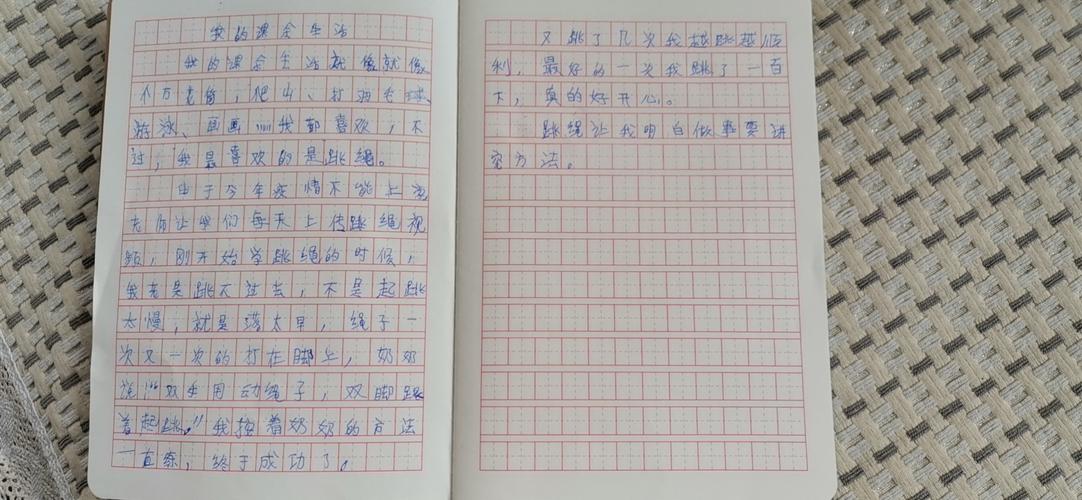 我的课余生活
我的课余生活就像就像
个万花筒，爬山、打羽毛球、
游泳、画画……我都喜欢，不
过，我最喜欢的是跳绳。
由于今年疫情不能上课
老师让我们每天上传跳绳视
频，刚开始学跳绳的时候，
我老是跳不过去，不是起跳
太慢，就是落太早，绳子一
次又一次的打在脚上，奶奶
说：“双手用动绳子，双脚跟
着起跳。”我按着奶奶的方法
一直练，终于成功了。
又跳了几次我越跳越顺
利，最好的一次我跳了一百
下，真的好开心。
跳绳让我明白做事要讲
究方法。